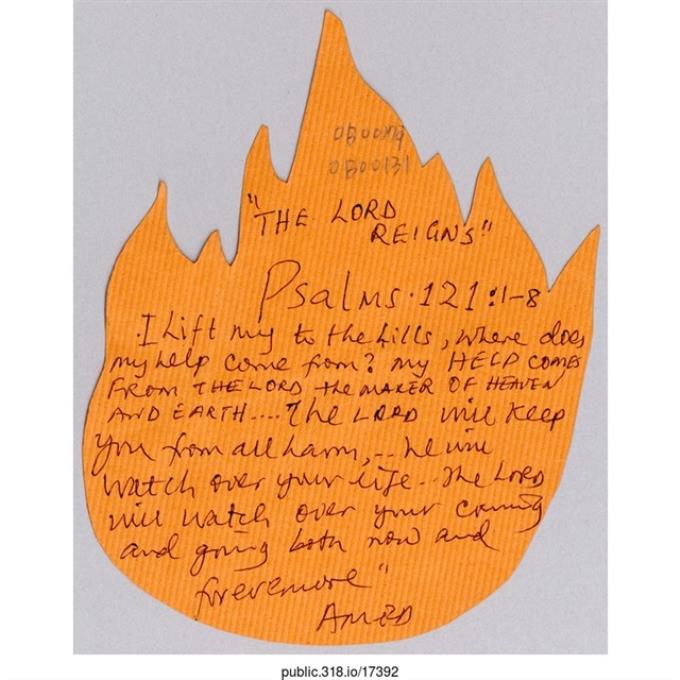 0B00179
0B00131
"THE LORD
REIGNS"
Psalms. 121:1-8
I Lift my to the hills, where does
my help come from? my HELP COMES
FROM THE LORD the MAKER OF HEAVEN
AND EARTH.... The LORD will keep
you from all harm,.. he will
watch over your life.. The LORD
will watch over your coming
and going both now and
forevermore"
public.318.io/17392